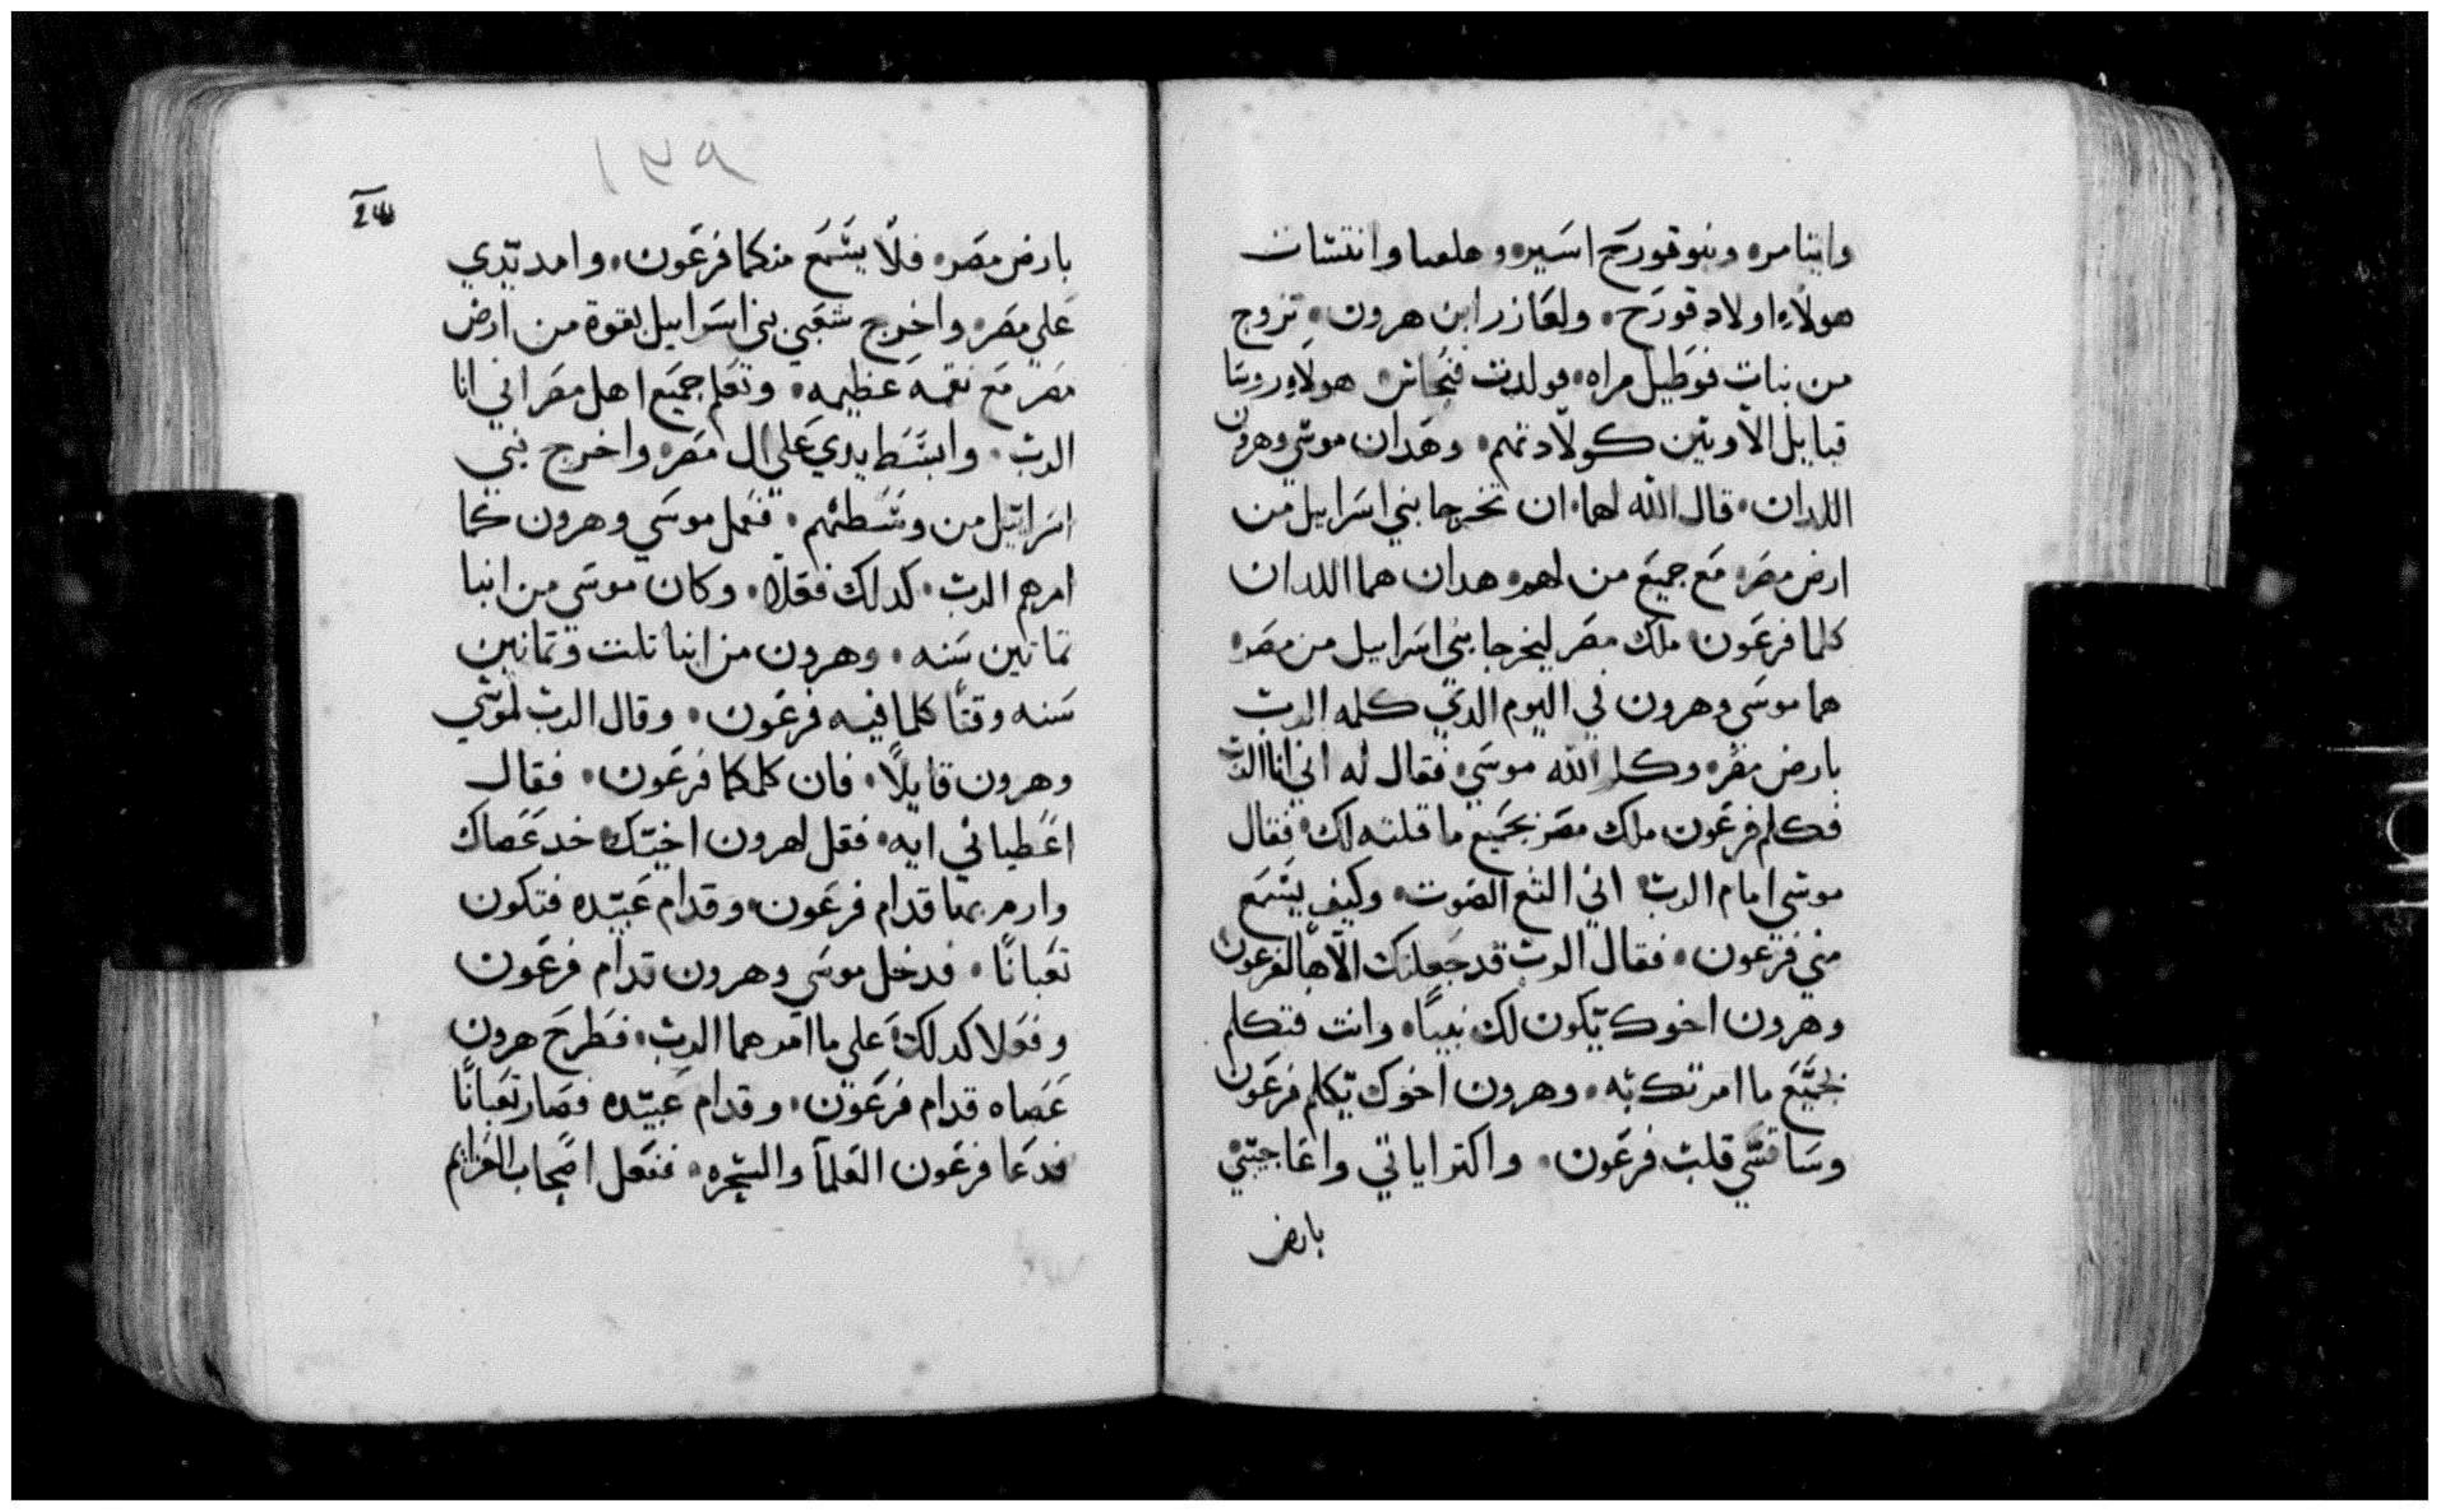 وايتامر• وبنو قورح اسير• و حلعبا وانتشات
هولاء اولاد قورح• ولعازر ابن هرون• تزوج
من بنات فوطيل مراه• فولدت فنحاس• هولاء روسا
قبايل الاويين كولادتهم• وهدان موسي وهرون
اللدان• قال الله لهما• ان تخرجا بني اسرايل من
ارض مصر• مع جميع من لهم• هدان هما اللدان
كلما فرعون• ملك مصر ليخرجا بني اسراييل من مصر•
هما موسي وهرون في اليوم الدي كلمه الرب
بارض مصر• وكلم الله موسي• فقال له اني انا الرب
فكلم فرعون ملك مصر بجميع ما قلته لك• فقال
موسي امام الرب• اني التع الصوت• وكيف يسمع
مني فرعون• فقال الرب قد جعلتك الاهًا لفرعون
وهرون اخوك يكون لك نبيًا• وانت فتكلم
بجميع ما امرتك به• وهرون اخوك يكلم فرعون
وساقسي قلب فرعون• واكتر اياتي واعاجيبي
بارض
١٣٩
بارض مصر• فلا يسمع منكما فرعون• وامد يدي
علي مصر• واخرج شعبي بني اسراييل بقوة من ارض
مصر مع نقمه عظيمه• وتعلم جميع اهل مصر اني انا
الرب• وابسط يدي علي ال مصر• واخرج بني
اسراييل من وسطهم• ففعل موسي وهرون كما
امرهم الرب• كدلك فعلا• وكان موسي من ابنا
تمانين سنه• وهرون من ابنا تلت وتمانين
سنه وقتًا كلما فيه فرعون• وقال الرب لموسي
وهرون قايلًا• فان كلمكما فرعون• فقال
اعطياني ايه• فقل لهرون اخيك• خد عصاك
وارم بها قدام فرعون• وقدام عبيده فتكون
تعبانًا• فدخل موسي وهرون قدام فرعون
وفعلا كدلك• علي ما امرهما الرب• فطرح هرون
عصاه قدام فرعون• وقدام عبيده فصار تعبانًا
فدعا فرعون العلما والسحره• ففعل اصحاب العزايم